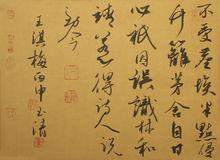 不受塵埃半點侵
竹籬茅舍自甘
心祇因误識林和
靖惹得诗人说
到今
王淇梅丙申玉清